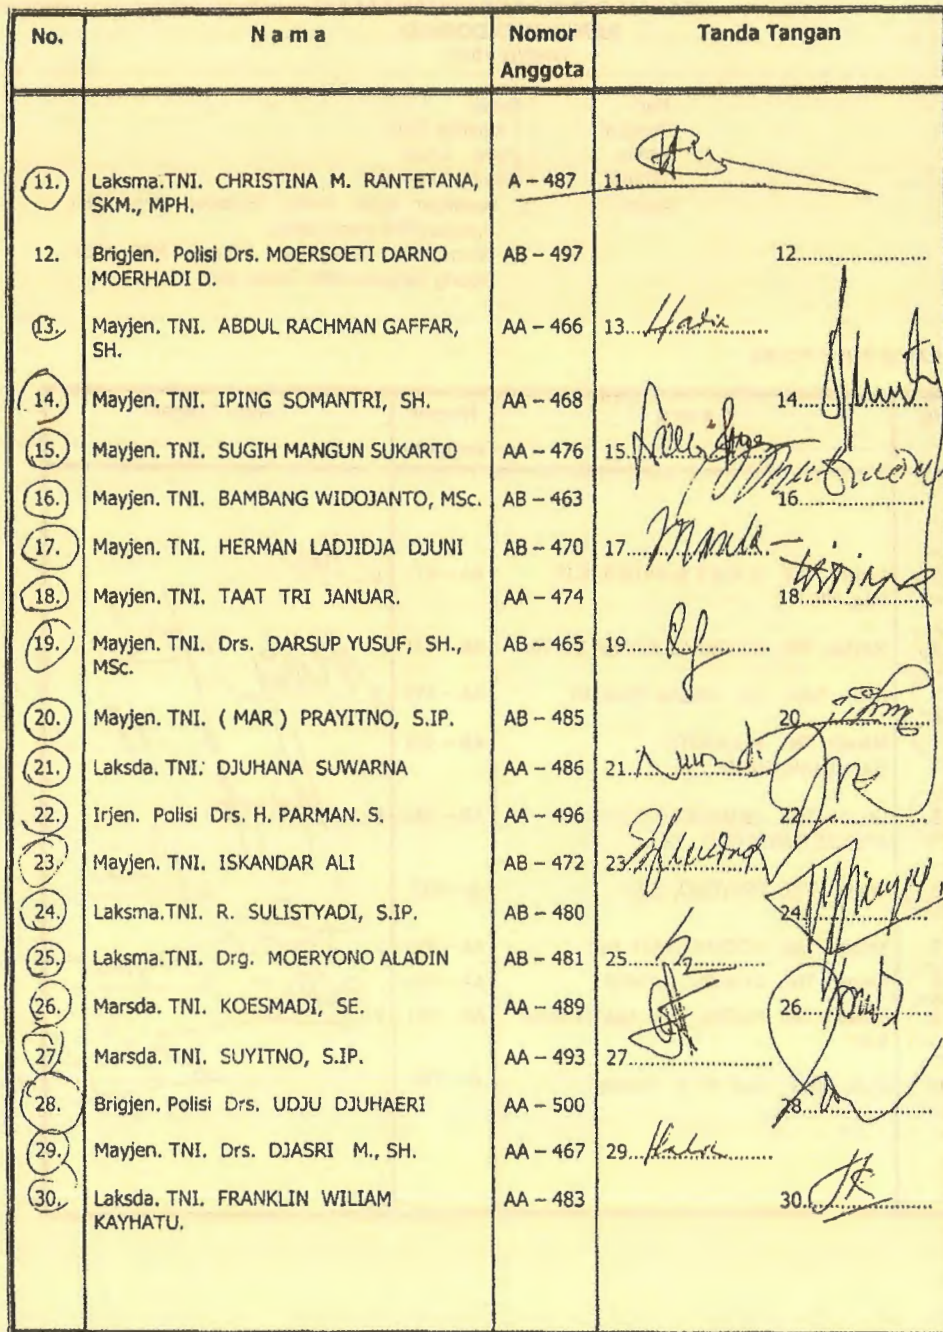 No. Nama Nomor Anggota Tanda Tangan
11. Laksma.TNI. CHRISTINA M. RANTETANA, A – 487 11
SKM., MPH.
12. Brigjen. Polisi Drs. MOERSOETI DARNO AB – 497 12........................
MOERHADI D.
13. Mayjen. TNI. ABDUL RACHMAN GAFFAR, AA – 466 13. Hadir
SH.
14. Mayjen. TNI. IPING SOMANTRI, SH. AA – 468 14
15. Mayjen. TNI. SUGIH MANGUN SUKARTO AA – 476 15
16. Mayjen. TNI. BAMBANG WIDOJANTO, MSc. AB – 463 16
17. Mayjen. TNI. HERMAN LADJIDJA DJUNI AB – 470 17
18. Mayjen. TNI. TAAT TRI JANUAR. AA – 474 18
19. Mayjen. TNI. Drs. DARSUP YUSUF, SH., AB – 465 19
MSc.
20. Mayjen. TNI. ( MAR ) PRAYITNO, S.IP. AB – 485 20
21. Laksda. TNI. DJUHANA SUWARNA AA – 486 21
22. Irjen. Polisi Drs. H. PARMAN. S. AA – 496 22
23. Mayjen. TNI. ISKANDAR ALI AB – 472 23
24. Laksma.TNI. R. SULISTYADI, S.IP. AB – 480 24
25. Laksma.TNI. Drg. MOERYONO ALADIN AB – 481 25
26. Marsda. TNI. KOESMADI, SE. AA – 489 26
27. Marsda. TNI. SUYITNO, S.IP. AA – 493 27
28. Brigjen. Polisi Drs. UDJU DJUHAERI AA – 500 28
29. Mayjen. TNI. Drs. DJASRI M., SH. AA – 467 29. Hadir
30. Laksda. TNI. FRANKLIN WILIAM AA – 483 30
KAYHATU.